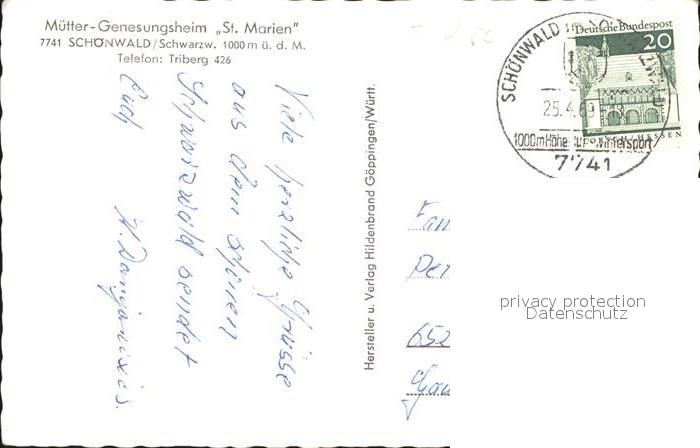 Mütter-Genesungsheim „St. Marien"
7741 SCHÖNWALD/Schwarzw. 1000 m ü. d. M.
Telefon: Triberg 426
Viele herzliche Grüsse
aus dem schönen
Schwarzwald sendet
Euch
Hersteller u. Verlag Hildenbrand Göppingen/Württ.
Deutsche Bundespost
20
SCHÖNWALD
25.4.69
1000m Höhe
Wintersport
7741
LORSCH/HESSEN
Fam
652
privacy protection
Datenschutz